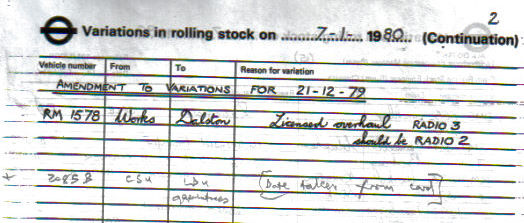 2
Variations in rolling stock on 7-1- 1980 (Continuation)
Vehicle number From To Reason for variation
AMENDMENT TO VARIATIONS FOR 21-12-79
RM 1578 Works Dalston Licensed overhaul RADIO 3
should be RADIO 2
CSU LDU [Date taken from card]